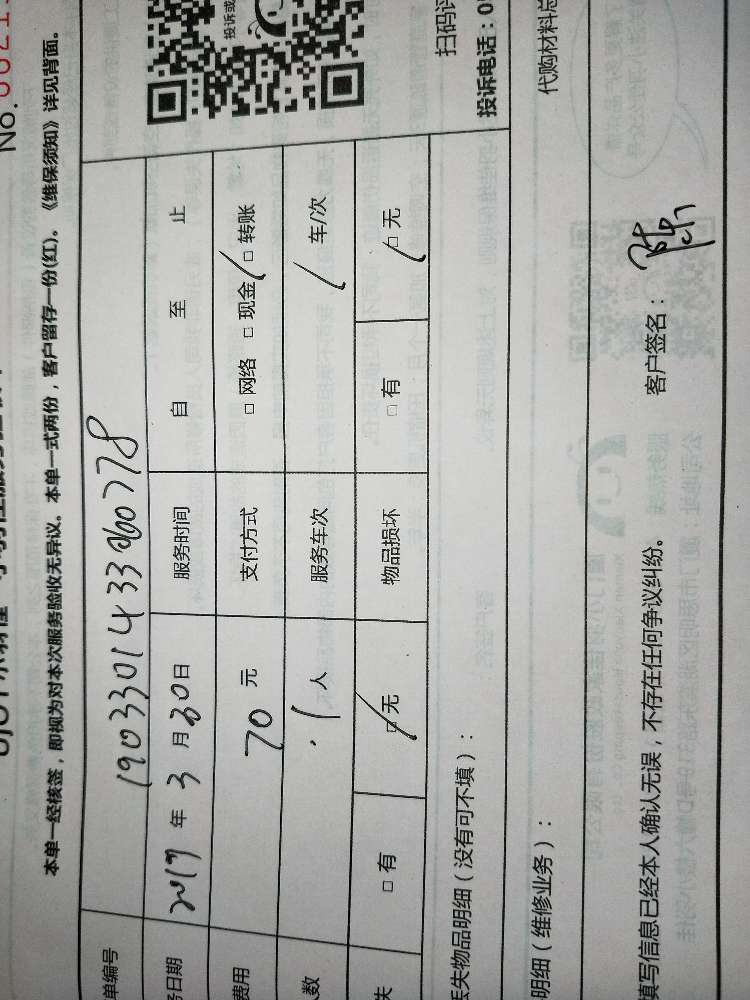 No.
本单一经核签，即视为对本次服务验收无异议。本单一式两份，客户留存一份(红)。《维保须知》详见背面。
单编号 1903301433060778
务日期 2019年3月30日 服务时间 自 至 止
费用 70元 支付方式 □网络 □现金 □转账
数 1人 服务车次 / 车/次
失 □有 □无 物品损坏 □有 □无
投诉或
扫码评
投诉电话：0
丢失物品明细（没有可不填）：
明细（维修业务）：
代购材料总
填写信息已经本人确认无误，不存在任何争议纠纷。 客户签名：